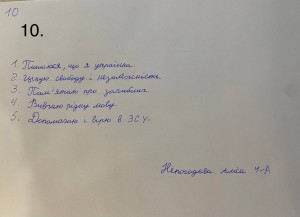 10
10.
1. Пишаюся, що я українка.
2. Ціную свободу і незалежність.
3. Пам'ятаю про загиблих.
4. Вивчаю рідну мову.
5. Допомагаю і вірю в ЗСУ.
Непогодєва Аліса 4-А